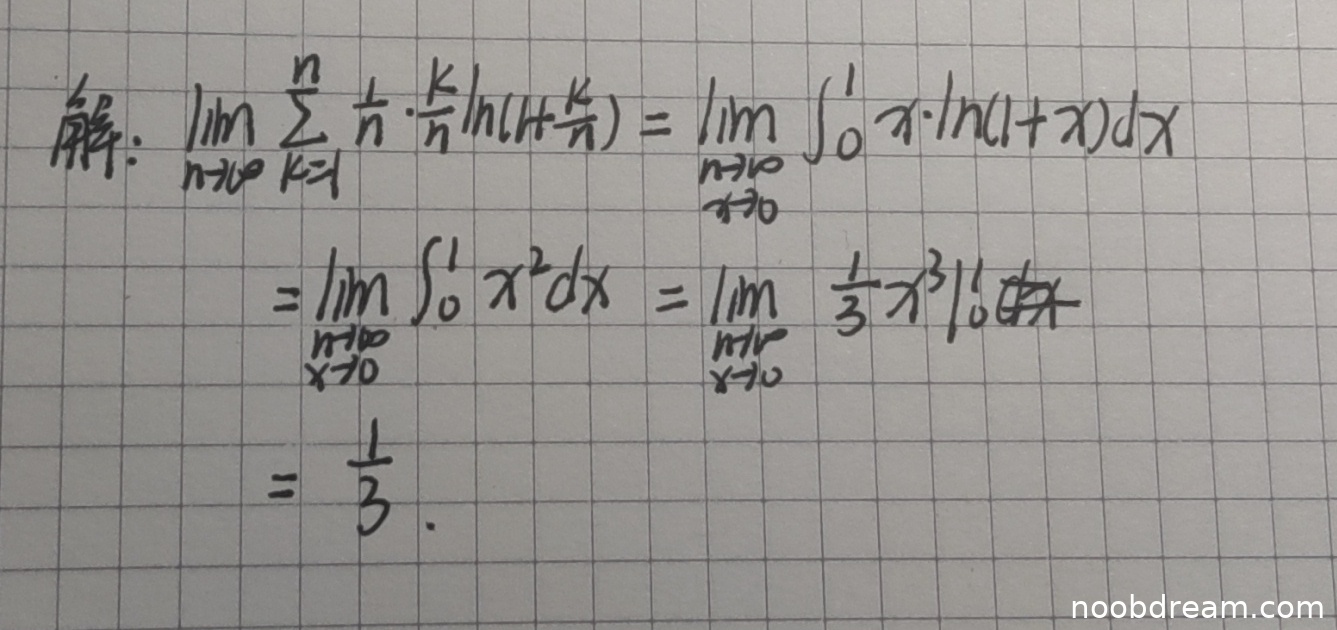 解: lim_{n→∞} ∑_{k=1}^{n} 1/n · k/n ln(1+k/n) = lim_{n→∞, x→0} ∫_0^1 x·ln(1+x)dx
= lim_{n→∞, x→0} ∫_0^1 x² dx = lim_{n→∞, x→0} 1/3 x³ |_0^1
= 1/3 .
noobdream.com